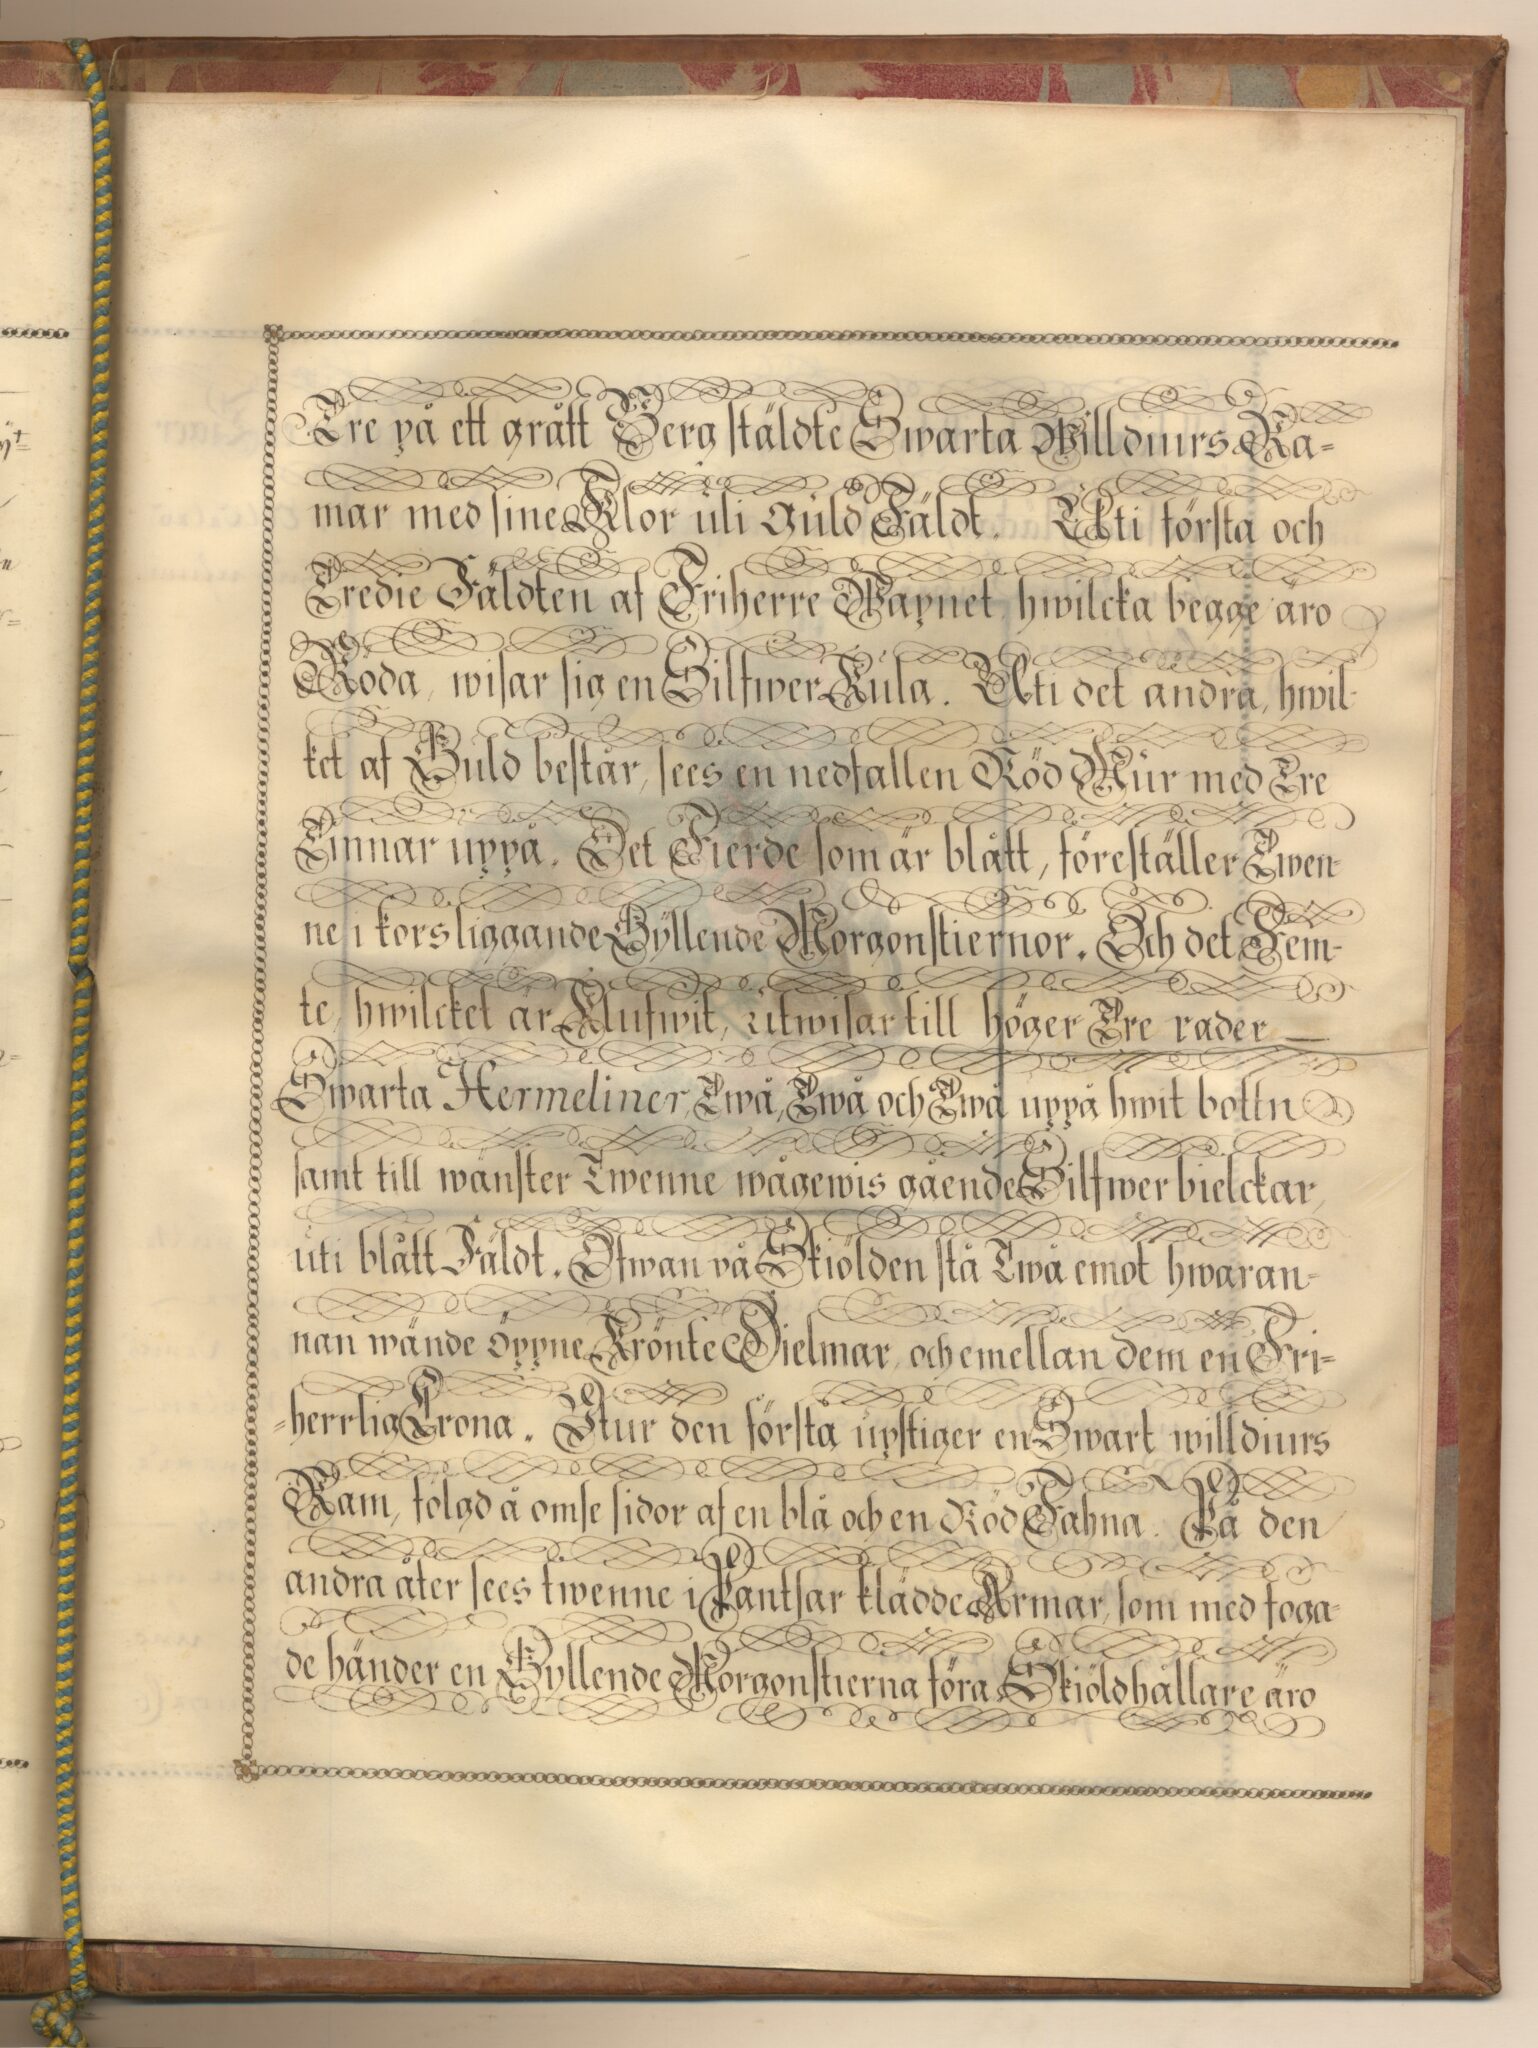 Tre på ett grått Berg stäldte Swarta Willdiurs Ra-
mar med sine Klor uti Guld Fäldt. Uti första och
Tredie Fäldten af Friherre Wapnet hwilcka begge äro
Röda, wisar sig en Silfwer Kula. Uti det andra, hwil-
ket af Guld består, sees en nedfallen Röd Mur med Tre
Tinnar uppå. Det Fierde som är blått, föreställer Twen-
ne i kors liggande Gyllende Morgonstiernor. Och det Fem-
te, hwilcket är Klufwit, utwisar till höger Tre rader
Swarta Hermeliner, Twå, Twå och Twå uppå hwit bottn
samt till wänster Twenne wågewis gående Silfwer bielckar,
uti blått Fäldt. Ofwan på Skiölden stå Twå emot hwaran-
nan wände öppne Krönte Hielmar, och emellan dem en Fri-
=herrlig Crona. Utur den första upstiger en Swart willdiurs
Ram, fölgd å omse sidor af en blå och en Röd Fahna. På den
andra åter sees twenne i Pantsar klädde Armar, som med foga-
de händer en Gyllende Morgonstierna föra. Skiöldhållare äro